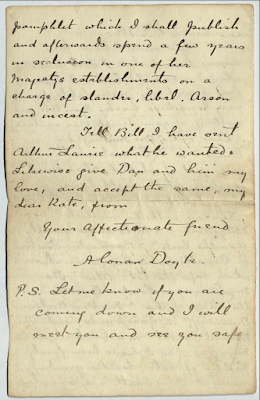 pamphlet which I shall publish
and afterwards spend a few years
in seclusion in one of her
Majestys establishments on a
charge of slander, libel, Arson
and incest.
Tell Bill I have sent
Arthur Laurie what he wanted &
Likewise give Dan and him my
love, and accept the same, my
dear Kate, from
Your Affectionate friend
A Conan Doyle.
P.S. Let me know if you are
coming down and I will
meet you and see you safe